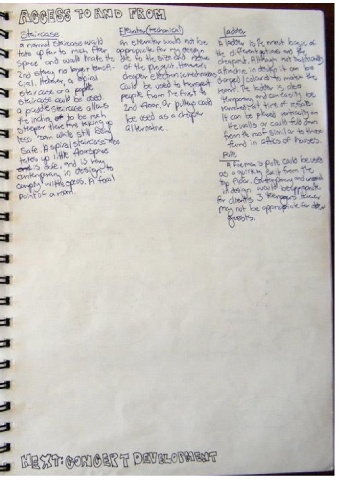 ACCESS TO AND FROM
Staircase
a normal staircase would
take up far to much floor
space and would make the
2nd storey no longer benefi-
cial. However, a spiral
staircase or a paddle
staircase could be used
a paddle staircase allows
the incline to be much
steeper there fore taking up
less room while still being
Safe. A spiral staircase also
takes up little floorspace
is safe and is very
contemporary in design to
comply with specs. A focal
point of a room.
Elevator (mechanical)
an elevator would not be
appropriate for my design
due to the size and nature
of the project. However,
cheaper
could be used to transport
people from the first to
2nd floor. A pulley could
be used as a cheaper
alternative.
Ladder
A ladder is the most basic of
the different options and the
cheapest. Although not
attractive in design it can be
shaped/colour to match the
room. The ladder is also
temporary and can easily be
It can be placed vertically on
the walls or could fold down
from the roof similar to those
found in attics of houses.
Pole
A fireman's pole could be used
as a quick exit from the
top floor. Contemporary and
in design would be appropriate
for clients 3 teenagers however
may not be appropriate for
guests.
NEXT: CONCEPT DEVELOPMENT